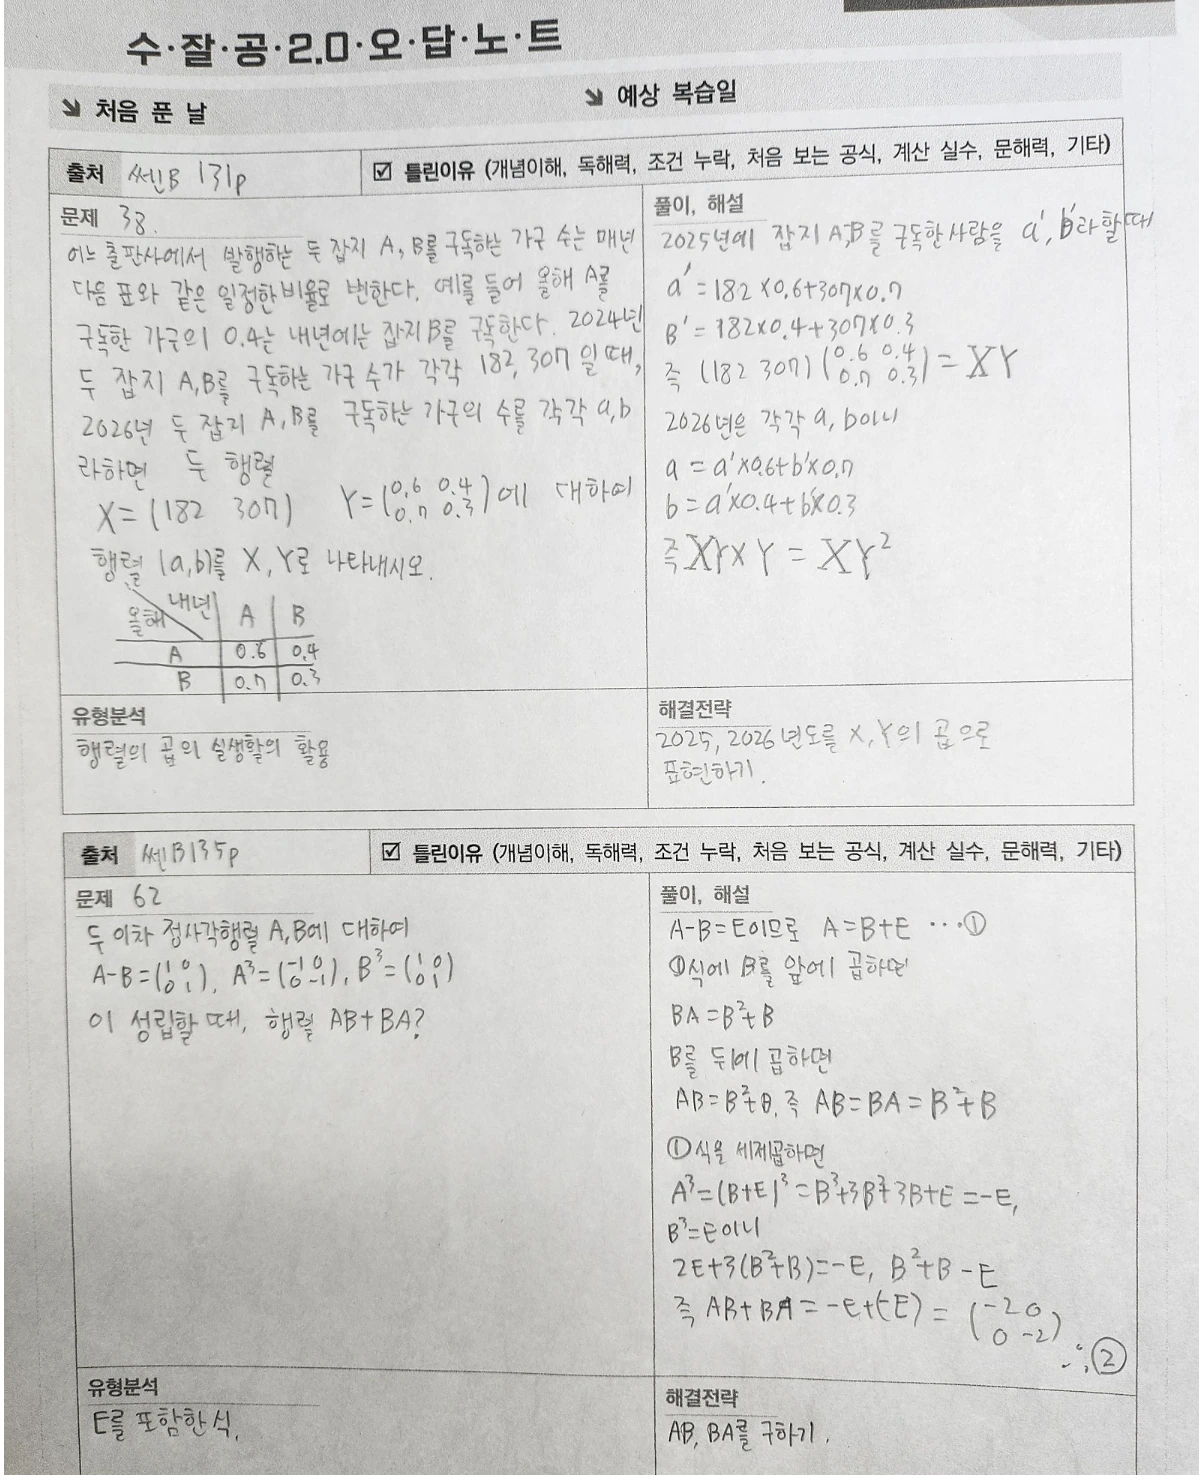 수·잘·공·2.0·오·답·노·트
↘ 처음 푼 날
↘ 예상 복습일
출처 쎈B 131p
☑ 틀린이유 (개념이해, 독해력, 조건 누락, 처음 보는 공식, 계산 실수, 문해력, 기타)
문제 38.
어느 출판사에서 발행하는 두 잡지 A, B를 구독하는 가구 수는 매년
다음 표와 같은 일정한 비율로 변한다. 예를 들어 올해 A를
구독한 가구의 0.4는 내년에는 잡지B를 구독한다. 2024년
두 잡지 A,B를 구독하는 가구 수가 각각 182, 307 일 때,
2026년 두 잡지 A,B를 구독하는 가구의 수를 각각 a,b
라하면 두 행렬
X=(182 307) Y=(0.6 0.4
0.7 0.3)에 대하여
행렬 (a,b)를 X, Y로 나타내시오.
내년
올해 A B
A 0.6 0.4
B 0.7 0.3
풀이, 해설
2025년에 잡지 A,B를 구독한사람을 a', b'라할때
a' = 182×0.6+307×0.7
B' = 182×0.4+307×0.3
즉 (182 307)(0.6 0.4
0.7 0.3) = XY
2026년은 각각 a, b이니
a = a'×0.6+b'×0.7
b = a'×0.4+b'×0.3
즉 XY×Y = XY²
유형분석
행렬의 곱의 실생활의 활용
해결전략
2025, 2026년도를 X, Y의 곱으로
표현하기.
출처 쎈B135p
☑ 틀린이유 (개념이해, 독해력, 조건 누락, 처음 보는 공식, 계산 실수, 문해력, 기타)
문제 62
두 이차 정사각행렬 A,B에 대하여
A-B=(1 0
0 1), A³=(-1 0
0 -1), B³=(1 0
0 1)
이 성립할 때, 행렬 AB+BA?
풀이, 해설
A-B=E이므로 A=B+E ···①
①식에 B를 앞에 곱하면
BA=B²+B
B를 뒤에 곱하면
AB=B²+B, 즉 AB=BA=B²+B
①식을 세제곱하면
A³=(B+E)³=B³+3B²+3B+E=-E,
B³=E이니
2E+3(B²+B)=-E, B²+B-E
즉 AB+BA=-E+(-E) = (-2 0
0 -2)
∴②
유형분석
E를 포함한 식.
해결전략
AB, BA를 구하기.